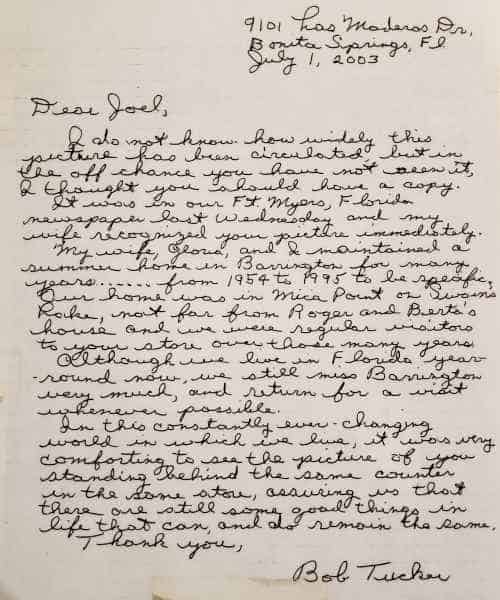 9101 Las Maderas Dr,
Bonita Springs, Fl
July 1, 2003
Dear Joel,
I do not know how widely this
picture has been circulated but in
the off chance you have not seen it,
I thought you should have a copy.
It was in our Ft. Myers, Florida
newspaper last Wednesday and my
wife recognized your picture immediately.
My wife, Gloria, and I maintained a
summer home in Barrington for many
years...... from 1954 to 1995 to be specific.
Our home was in Mica Point on Swains
Lake, not far from Roger and Berta's
house and we were regular visitors
to your store over those many years.
Although we live in Florida year-
-round now, we still miss Barrington
very much, and return for a visit
whenever possible.
In this constantly ever-changing
world in which we live, it was very
comforting to see the picture of you
standing behind the same counter
in the same store, assuring us that
there are still some good things in
life that can, and do remain the same.
Thank you,
Bob Tucker